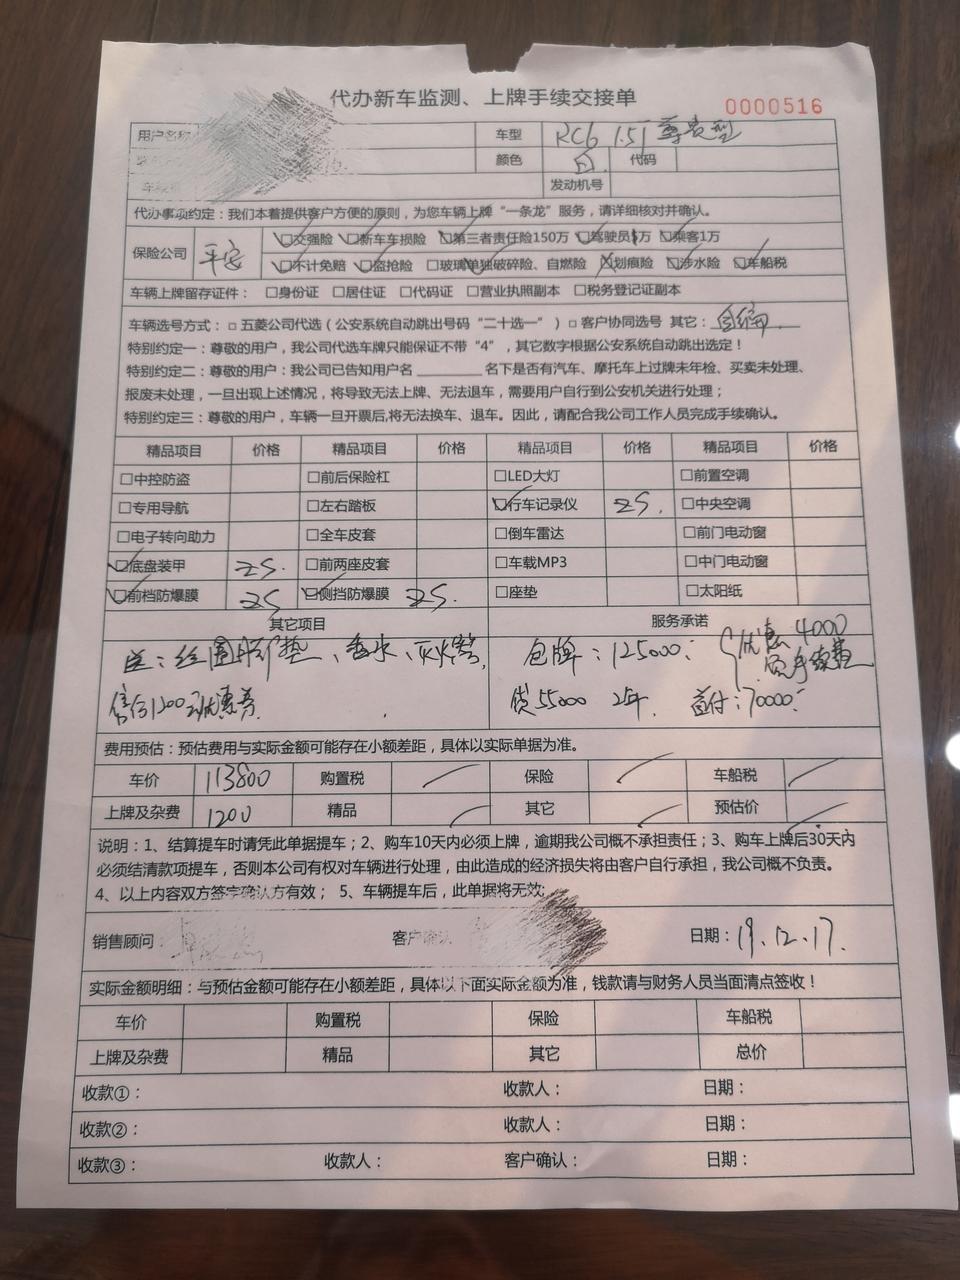 代办新车监测、上牌手续交接单
0000516
用户名称 车型 RC6 1.5T 尊贵型
颜色 白 代码
发动机号
代办事项约定：我们本着提供客户方便的原则，为您车辆上牌“一条龙”服务，请详细核对并确认。
保险公司 平安 ☑交强险 ☑新车车损险 ☑第三者责任险150万 ☑驾驶员1万 ☑乘客1万
☑不计免赔 ☑盗抢险 □玻璃单独破碎险、自燃险 ☑划痕险 ☑涉水险 ☑车船税
车辆上牌留存证件：□身份证 □居住证 □代码证 □营业执照副本 □税务登记证副本
车辆选号方式：□ 五菱公司代选（公安系统自动跳出号码“二十选一”）□ 客户协同选号 其它：自编
特别约定一：尊敬的用户，我公司代选车牌只能保证不带“4”，其它数字根据公安系统自动跳出选定！
特别约定二：尊敬的用户：我公司已告知用户名________名下是否有汽车、摩托车上过牌未年检、买卖未处理、
报废未处理，一旦出现上述情况，将导致无法上牌、无法退车，需要用户自行到公安机关进行处理；
特别约定三：尊敬的用户，车辆一旦开票后,将无法换车、退车。因此，请配合我公司工作人员完成手续确认。
精品项目 价格 精品项目 价格 精品项目 价格 精品项目 价格
□中控防盗 □前后保险杠 □LED大灯 □前置空调
□专用导航 □左右踏板 ☑行车记录仪 ZS. □中央空调
□电子转向助力 □全车皮套 □倒车雷达 □前门电动窗
☑底盘装甲 ZS. □前两座皮套 □车载MP3 □中门电动窗
☑前档防爆膜 ZS ☑侧挡防爆膜 ZS. □座垫 □太阳纸
其它项目 服务承诺
送：全围脚垫、香水、灭火器， 包牌：125000： 优惠4000
手续费
1200元优惠券 贷55000 2年. 首付：70000：
费用预估：预估费用与实际金额可能存在小额差距，具体以实际单据为准。
车价 113800 购置税 保险 车船税
上牌及杂费 1200 精品 其它 预估价
说明：1、结算提车时请凭此单据提车；2、购车10天内必须上牌，逾期我公司概不承担责任；3、购车上牌后30天内
必须结清款项提车，否则本公司有权对车辆进行处理，由此造成的经济损失将由客户自行承担，我公司概不负责。
4、以上内容双方签字确认方有效； 5、车辆提车后，此单据将无效;
销售顾问： 客户确认 日期：19.12.17.
实际金额明细：与预估金额可能存在小额差距，具体以下面实际金额为准，钱款请与财务人员当面清点签收！
车价 购置税 保险 车船税
上牌及杂费 精品 其它 总价
收款①： 收款人： 日期：
收款②： 收款人： 日期：
收款③： 收款人： 客户确认： 日期：